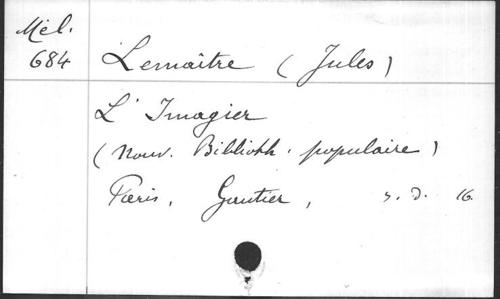 Mél.
684
Lemaître (Jules)
L'Imagier
(Nouv. Biblioth. populaire)
Paris, Gautier, s. d. 16